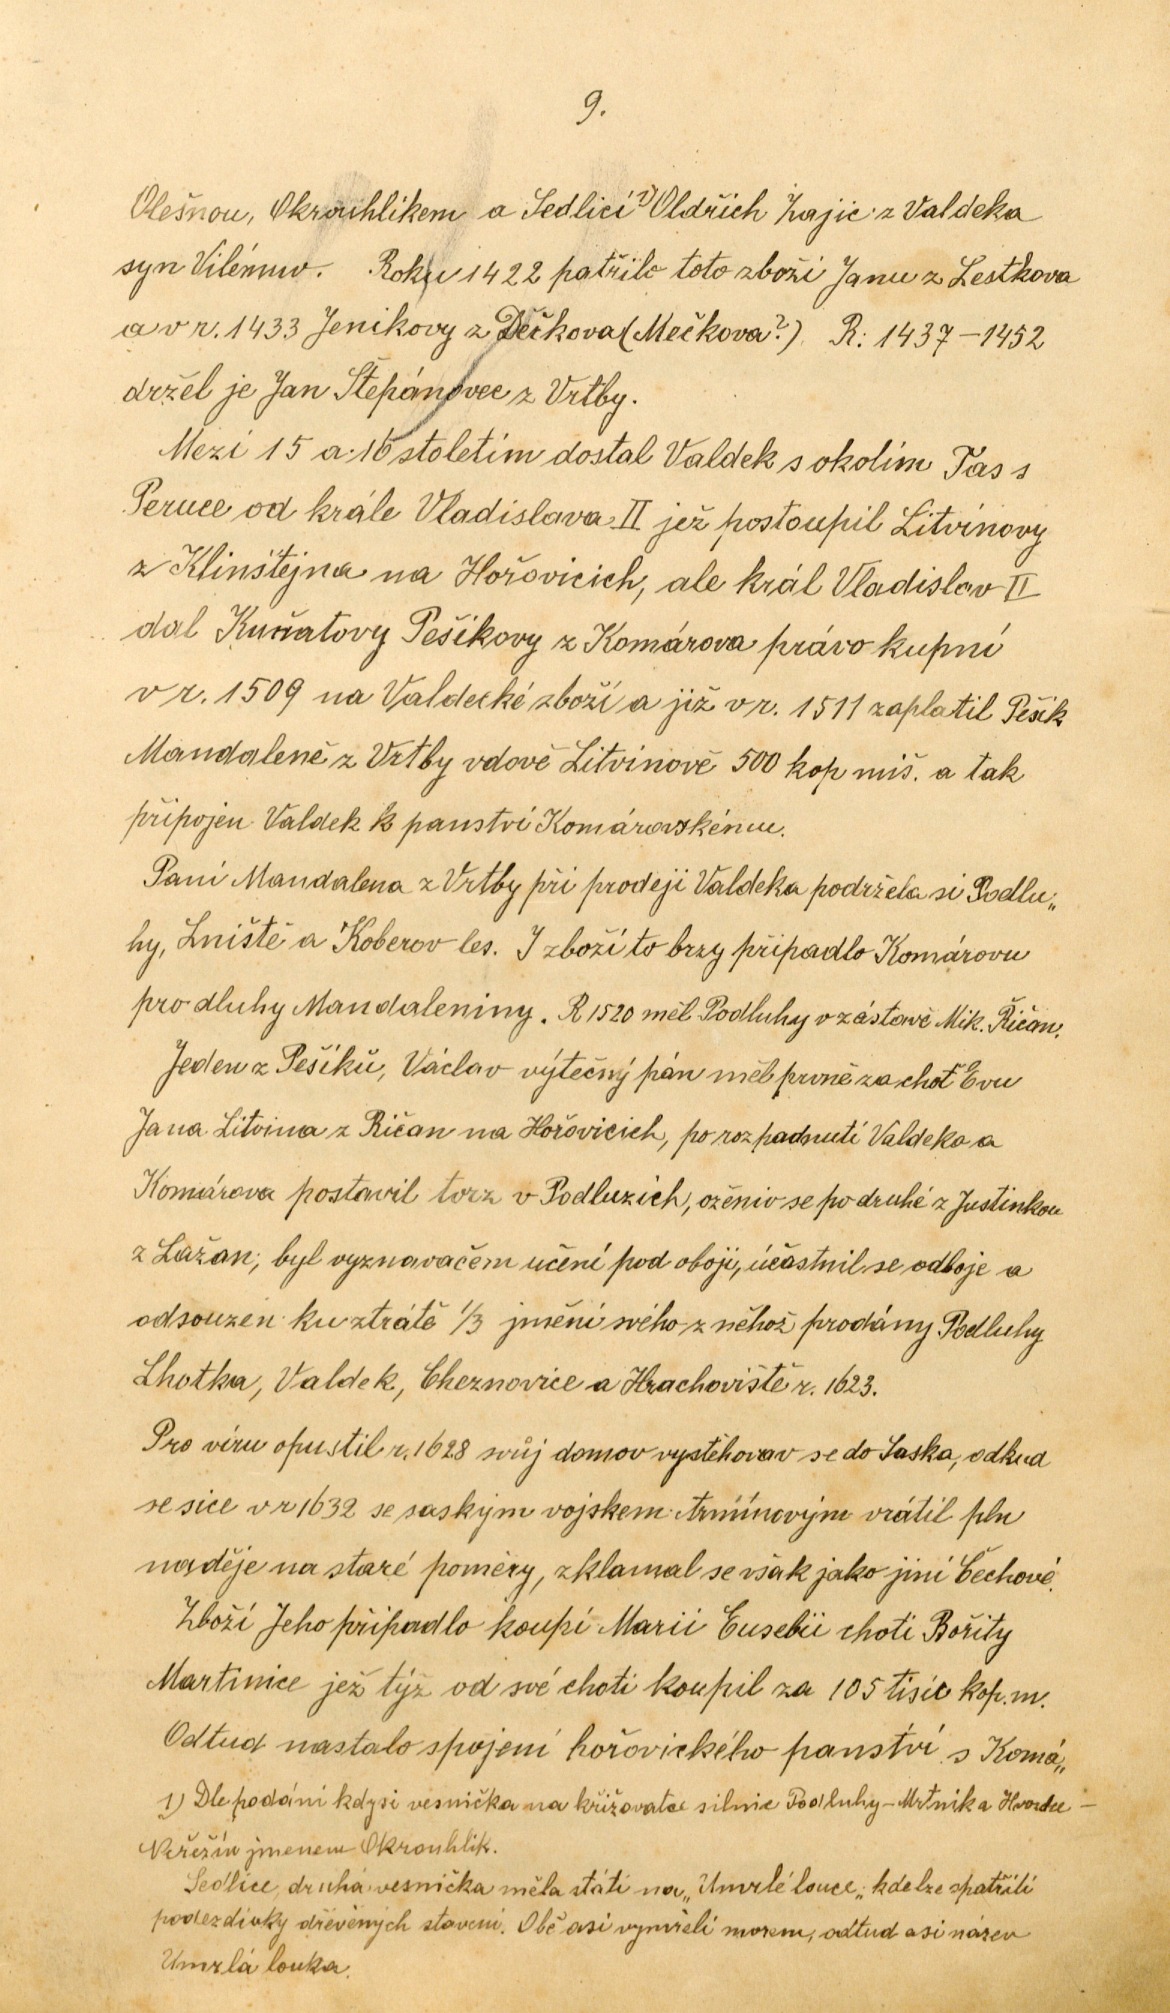 9.
Olešnou, Okrouhlíkem a Sedlicí 1) Oldřich Zajíc z Valdeka
syn Vilémuv. Roku 1422 patřilo toto zboží Janu z Lestkova
a v r. 1433 Jeníkovy z Dečkova (Mečkova?) R: 1437 – 1452
držel je Jan Štěpánovec z Vrtby.
Mezi 15 a 16 stoletím dostal Valdek s okolím Tas s
Peruce od krále Vladislava II jež postoupil Litvínovy
z Klinštejna na Hořovicích, ale král Vladislav II
dal Kuňatovy Pešíkovy z Komárova právo kupní
v r. 1509 na Valdecké zboží a již v r. 1511 zaplatil Pešík
Mandaleně z Vrtby vdově Litvínově 500 kop miš. a tak
připojen Valdek k panství Komárovskému.
Paní Mandalena z Vrtby při prodeji Valdeka podržela si Podlu„
hy, Lniště a Koberov les. I zboží to brzy připadlo Komárovu
pro dluhy Mandaleniny. R 1520 měl Podluhy v zástavě Mik. Řičan.
Jeden z Pešíků, Václav výtečný pán měl prvně za choť Evu
Jana Litvina z Řičan na Hořovicích, po rozpadnutí Valdeka a
Komárova postavil tvrz v Podluzích, oženiv se podruhé z Justinkou
z Lažan, byl vyznavačem učení pod obojí, účastnil se odboje a
odsouzen ku ztrátě 1/3 jmění svého z něhož prodány Podluhy
Lhotka, Valdek, Cheznovice a Hrachoviště r. 1623.
Pro víru opustil r. 1628 svůj domov vystěhovav se do Saska, odkud
se sice v r 1632 se saským vojskem Armínovým vrátil pln
naděje na staré poměry, zklamal se však jako jiní Čechové.
Zboží Jeho připadlo koupí Marii Eusebii choti Bořity
Martinice jež týž od své choti koupil za 105 tisíc kop. m.
Odtud nastalo spojení hořovického panství s Komá„
1) Dle podání kdysi vesnička na křižovatce silnic Podluhy – Mrtník a Hvozdec –
Neřežín jmenem Okrouhlík.
Sedlice, druhá vesnička měla státi na „Umrlé louce„ kde lze spatřiti
podezdívky dřevěných stavení. Obě asi vymřeli morem, odtud asi název
Umrlá louka.